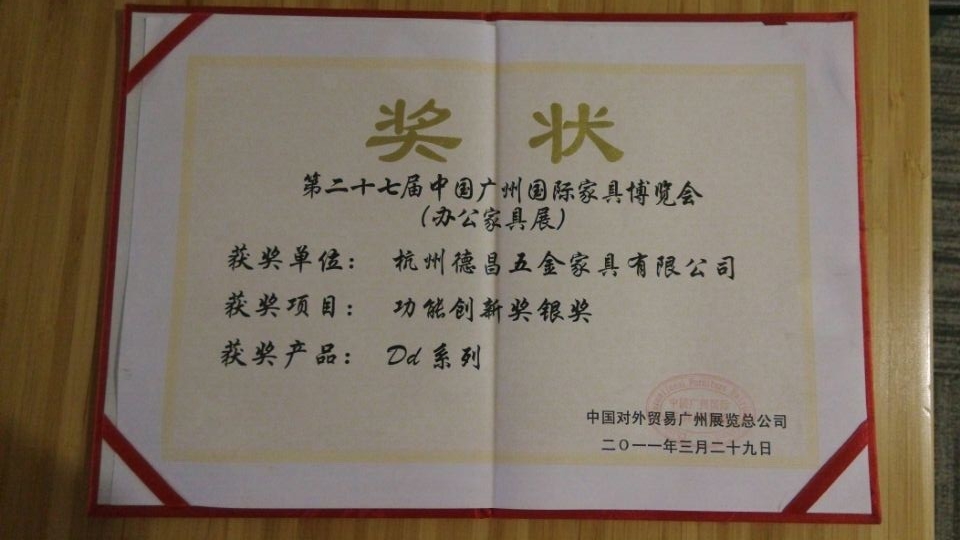 奖状
第二十七届中国广州国际家具博览会
(办公家具展)
获奖单位: 杭州德昌五金家具有限公司
获奖项目: 功能创新奖银奖
获奖产品: Dd系列
中国对外贸易广州展览总公司
二○一一年三月二十九日